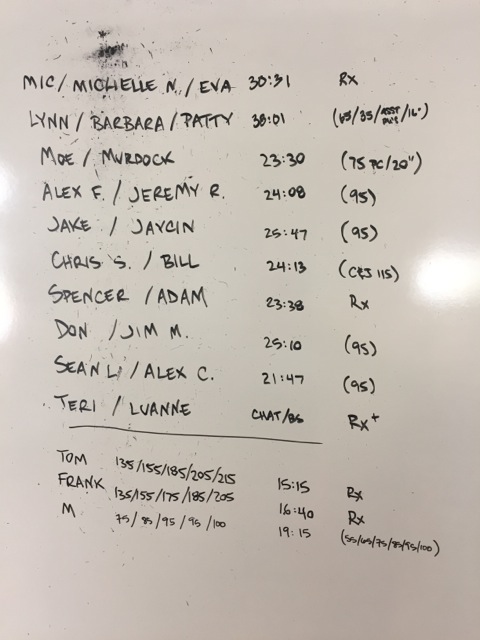 MIC / MICHELLE N. / EVA 30:31 Rx
LYNN / BARBARA / PATTY 38:01 (65/35/ASST /16")
MOE / MURDOCK 23:30 (75 PC/20")
ALEX F. / JEREMY R. 24:08 (95)
JAKE / JAYCIN 25:47 (95)
CHRIS S. / BILL 24:13 (C&J 115)
SPENCER / ADAM 23:38 Rx
DON / JIM M. 25:10 (95)
SEAN L. / ALEX C. 21:47 (95)
TERI / LUANNE CHAT/BS Rx+
TOM 135/155/185/205/215 15:15 Rx
FRANK 135/155/175/185/205 16:40 Rx
M 75/85/95/95/100 19:15 (55/65/75/85/95/100)